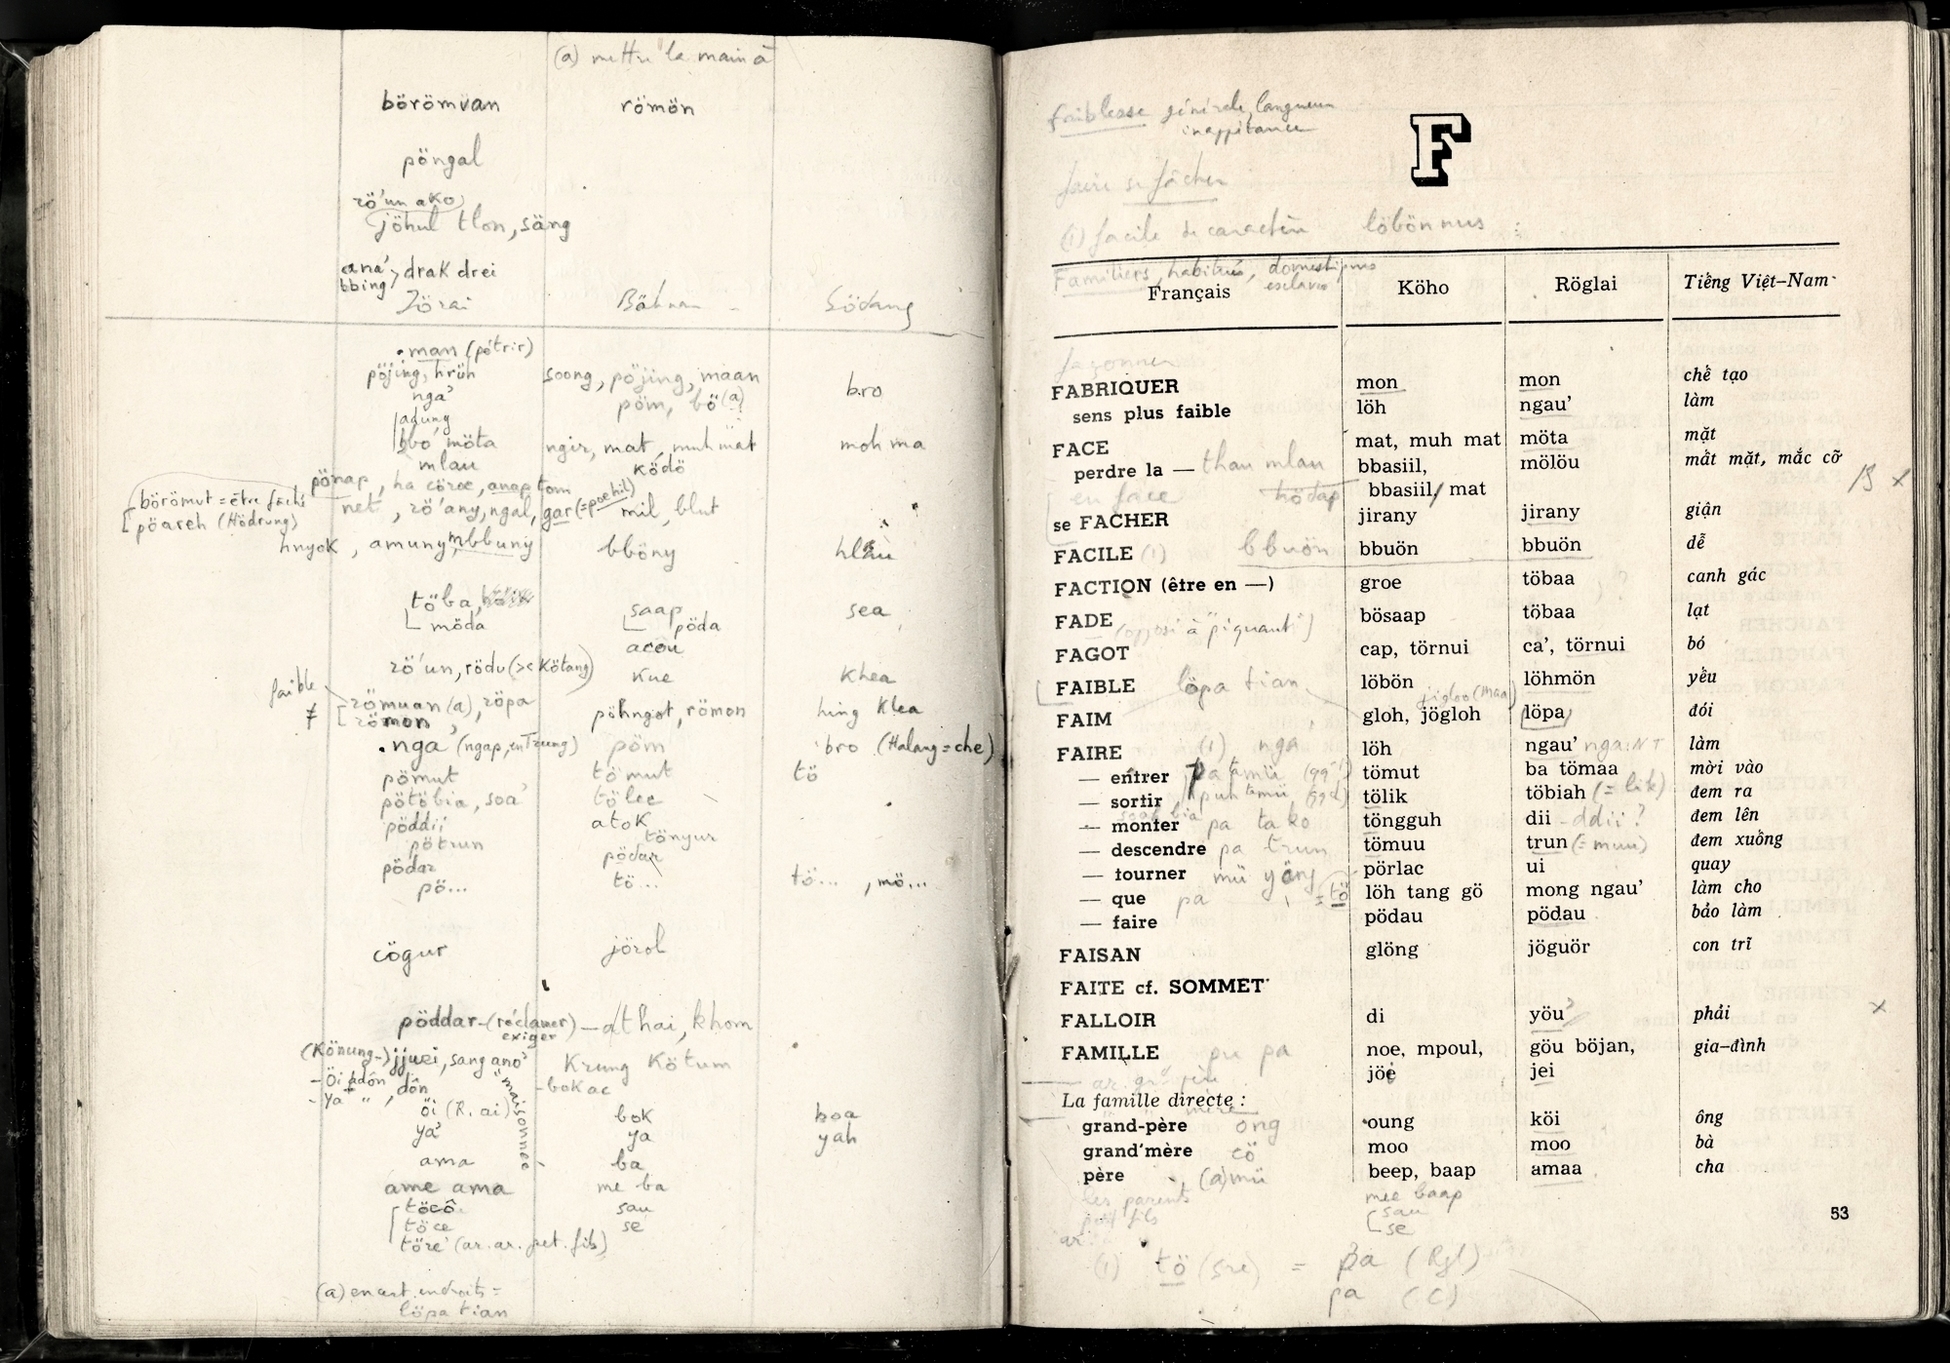 (a) mettre la main à
börömüan römön
pöngal
rö'un ako
jöhul tlon, säng
ana', drak drei
bbing
Jörai Bahnar Södang
man (pétrir)
pöjing, hrüh soong, pöjing, maan bro
nga' pöm, bö (a)
adung
bbo' möta ngir, mat, muh mat moh ma
mlau ködö
pönap, ha cöroe, anap tom
börömut = être fâché net, rö'any, ngal, gar (=poehil) mil, blut
pöareh (Hödrung)
hnyok, amuny, mbbuny bböny hlau
töba, saap sea
möda pöda
acou
rö'un, rödu (>< Kötang) kue khea
faible
≠ römuan (a), röpa pöhngot, römon hing klea
römon,
nga (ngap, en Trung) pöm bro (Halang = che)
pömut tömut tö
pötöbia, soa' tölec
pöddii atok
pötrun tönyur
pödar pödar
pö... tö... tö..., mö...
cögur jörol
pöddar (réclamer) — athai, khom
exiger
(Könung-) jjuei, sang ano' Krung Kötum
"maisonnée
- Öi adôn, dôn - bok ac
- Ya " 
öi (R. ai) bok boa
ya' ya yah
ama ba
ame ama me ba
töcô sau
töce se
töre' (ar. ar. pet. fils)
(a) en cert. endroits =
löpa tian
faiblesse générale, langueur
inappétence
faire se fâcher
(1) facile de caractère löbön nus
F
Familiers, habitués, domestiques
esclaves
Français Köho Röglai Tiếng Việt-Nam
façonner
FABRIQUER mon mon chế tạo
sens plus faible löh ngau' làm
FACE mat, muh mat möta mặt
perdre la — thau mlau bbasiil, mölöu mất mặt, mắc cỡ
en face hödap bbasiil/ mat
se FACHER jirany jirany giận
FACILE (1) bbuön bbuön bbuön dễ
FACTION (être en —) groe töbaa ? canh gác
FADE (opposé à "piquant") bösaap töbaa lạt
FAGOT cap, törnui ca', törnui bó
FAIBLE löpa tian löbön löhmön yếu
jögloo (Maa)
FAIM gloh, jögloh löpa đói
FAIRE (1) nga löh ngau' nga: NT làm
— entrer pa tamü tömut ba tömaa mời vào
— sortir tölik töbiah (= lik) đem ra
— monter pa tako töngguh dii - ddii? đem lên
— descendre pa trun tömuu trun (= muu) đem xuống
— tourner mü yäng pörlac ui quay
— que pa = tö löh tang gö mong ngau' làm cho
— faire pödau pödau bảo làm
FAISAN glöng jöguör con trĩ
FAITE cf. SOMMET
FALLOIR di yöu phải
FAMILLE pu pa noe, mpoul, göu böjan, gia-đình
jöe jei
La famille directe :
grand-père ong oung köi ông
grand'mère cö moo moo bà
père (a)mü beep, baap amaa cha
les parents mee baap
petit fils sau
ar. se
53
(1) tö (sre) = pa (Rgl)
pa (C)